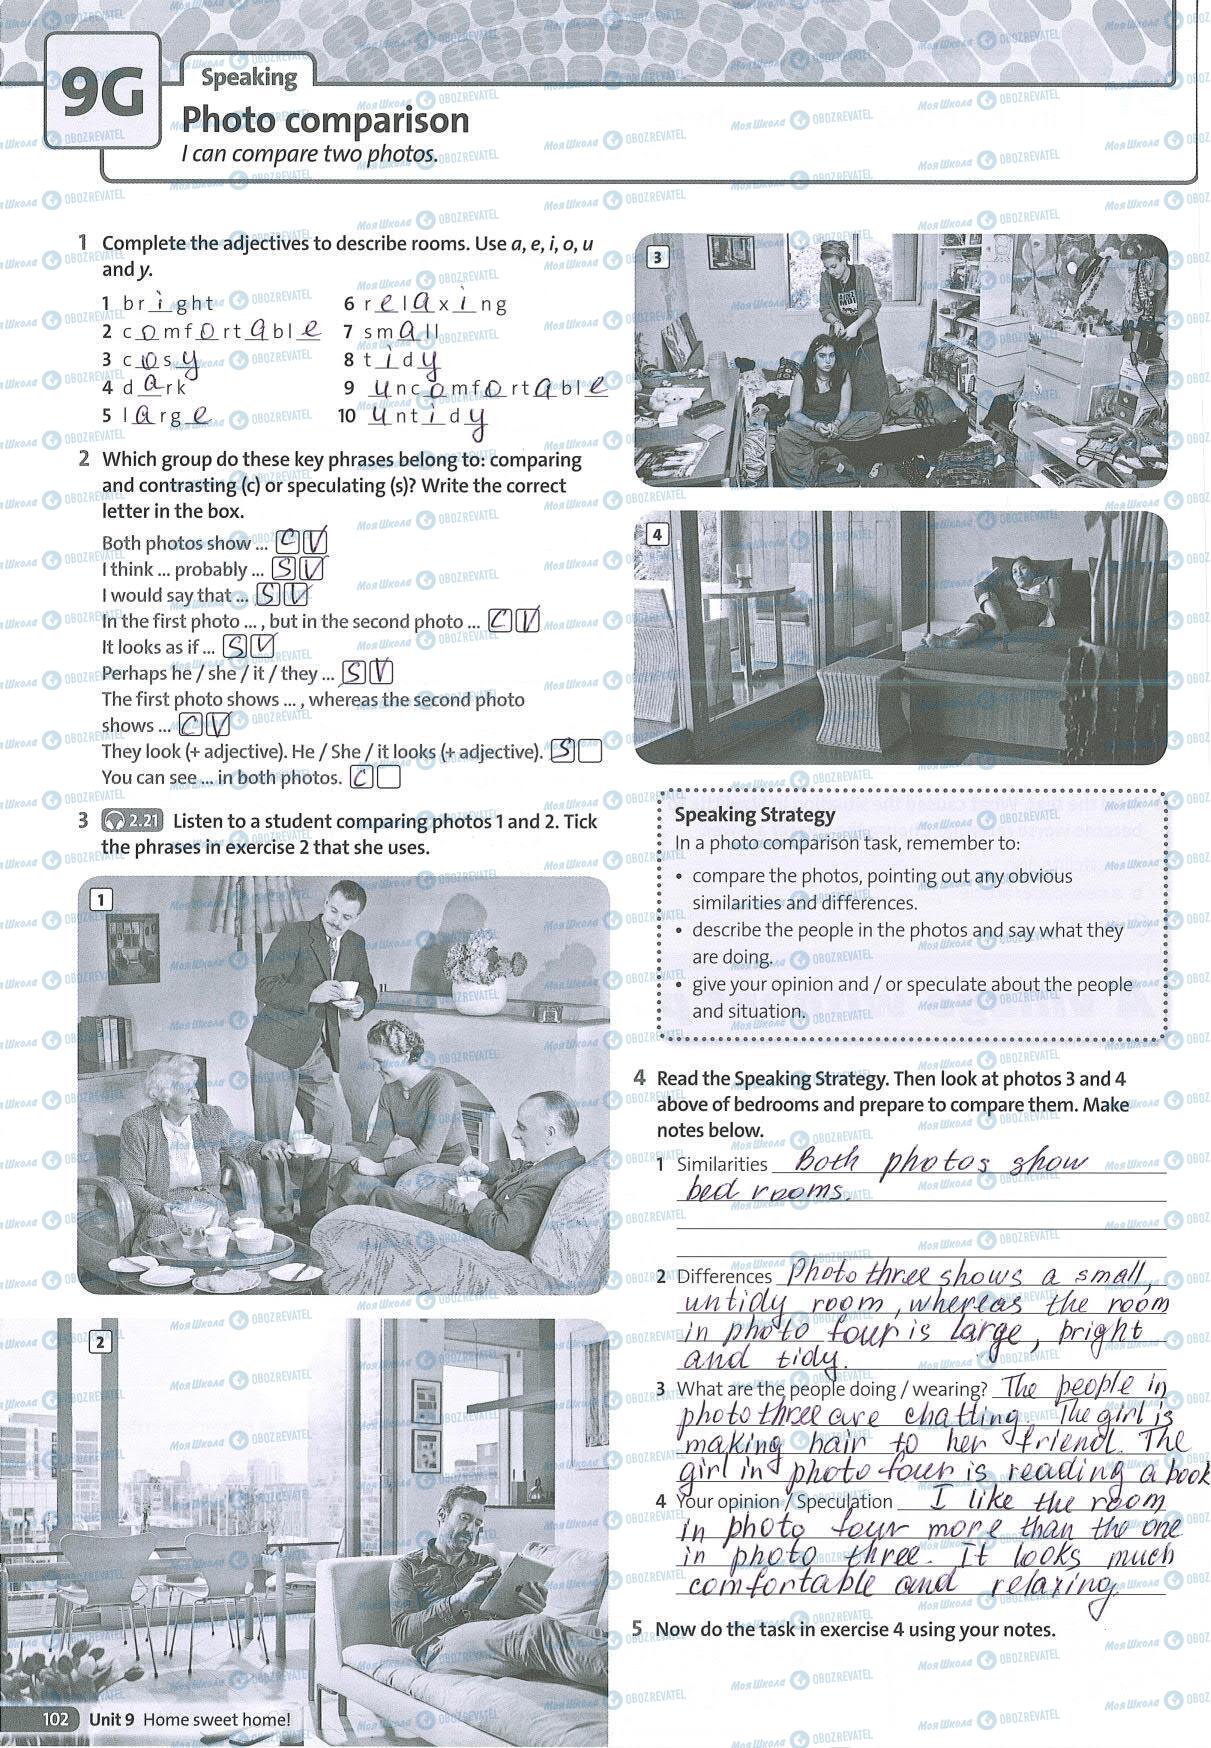 9G
Speaking
Photo comparison
I can compare two photos.
1 Complete the adjectives to describe rooms. Use a, e, i, o, u
and y.
1 bright
2 comfortable
3 cosy
4 dark
5 large
6 relaxing
7 small
8 tidy
9 uncomfortable
10 untidy
2 Which group do these key phrases belong to: comparing
and contrasting (c) or speculating (s)? Write the correct
letter in the box.
Both photos show ... C V
I think ... probably ... S V
I would say that ... S V
In the first photo ... , but in the second photo ... C V
It looks as if ... S V
Perhaps he / she / it / they ... S V
The first photo shows ... , whereas the second photo
shows ... C V
They look (+ adjective). He / She / it looks (+ adjective). S
You can see ... in both photos. C
3 2.21 Listen to a student comparing photos 1 and 2. Tick
the phrases in exercise 2 that she uses.
1
2
102 Unit 9 Home sweet home!
3
4
Speaking Strategy
In a photo comparison task, remember to:
• compare the photos, pointing out any obvious
similarities and differences.
• describe the people in the photos and say what they
are doing.
• give your opinion and / or speculate about the people
and situation.
4 Read the Speaking Strategy. Then look at photos 3 and 4
above of bedrooms and prepare to compare them. Make
notes below.
1 Similarities Both photos show
bed rooms.
2 Differences Photo three shows a small,
untidy room, whereas the room
in photo four is large, bright
and tidy.
3 What are the people doing / wearing? The people in
photo three are chatting. The girl is
making hair to her friend. The
girl in photo four is reading a book
4 Your opinion / Speculation I like the room
in photo four more than the one
in photo three. It looks much
comfortable and relaxing.
5 Now do the task in exercise 4 using your notes.
Моя Школа OBOZREVATEL